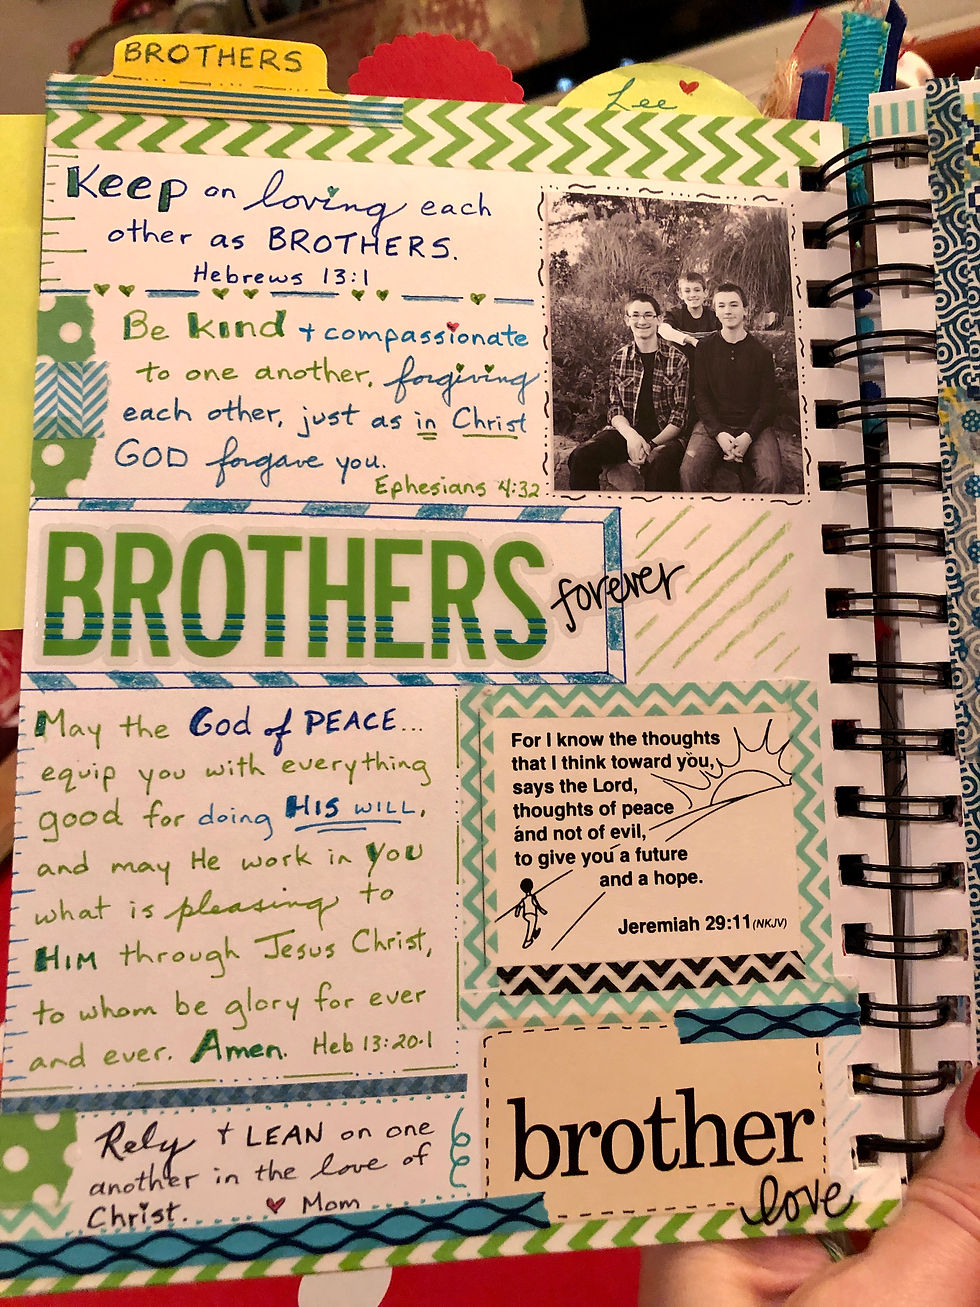 BROTHERS
Lee
Keep on loving each
other as BROTHERS.
Hebrews 13:1
Be kind + compassionate
to one another, forgiving
each other, just as in Christ
GOD forgave you.
Ephesians 4:32
BROTHERS
forever
May the God of PEACE...
equip you with everything
good for doing HIS WILL,
and may He work in you
what is pleasing to
HIM through Jesus Christ,
to whom be glory for ever
and ever. Amen. Heb 13:20-1
For I know the thoughts
that I think toward you,
says the Lord,
thoughts of peace
and not of evil,
to give you a future
and a hope.
Jeremiah 29:11 (NKJV)
Rely + LEAN on one
another in the love of
Christ. Mom
brother
love